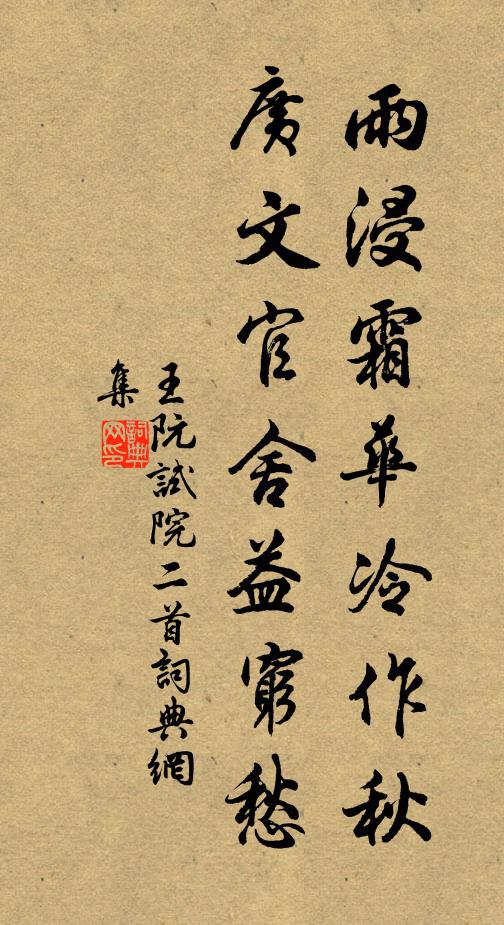 雨浸霜華冷作秋
廣文官舍益窮愁
王阮試院二首詞典網
集
詞典網印